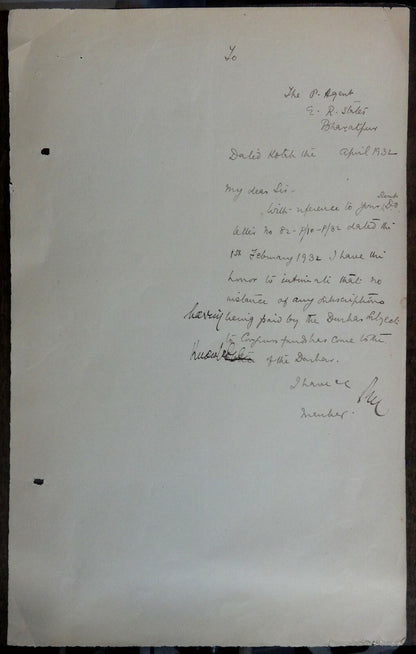 To
The P. Agent
E. R. States
Bharatpur
Dated Kotah the April 1932
My dear Sir,
With reference to your Secret D.O.
letter no 82-P/10-P/32 dated the
1st February 1932 I have the
honor to intimate that no
instance of any subscriptions
having being paid by the Durbar Subjects
to Congress fund has come to the
Knowledge of the Durbar.
I have &c
Member.